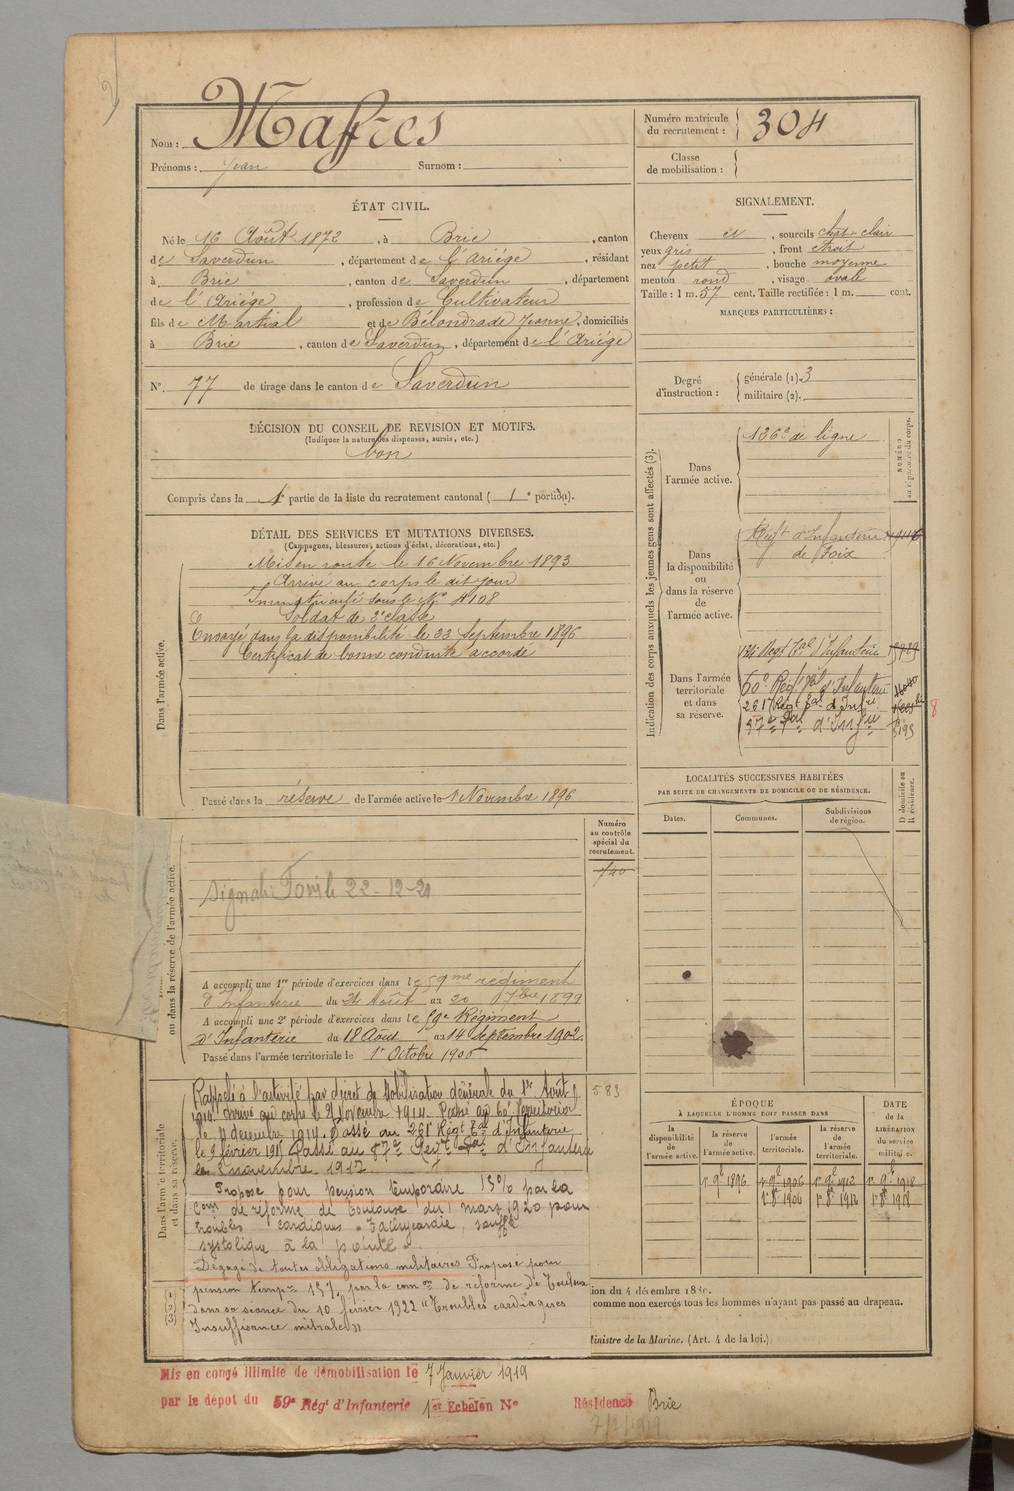 Nom : Maffres
Prénoms : Jean Surnom :
Numéro matricule du recrutement : 304
Classe de mobilisation :
ÉTAT CIVIL.
Né le 16 Août 1872, à Brie, canton
de Saverdun, département de l'Ariége, résidant
à Brie, canton de Saverdun, département
de l'Ariége, profession de Cultivateur
fils de Martial et de Bélondrade Jeanne, domiciliés
à Brie, canton de Saverdun, département de l'Ariége
N° 77 de tirage dans le canton de Saverdun
SIGNALEMENT.
Cheveux et, sourcils chat-clair
yeux gris, front étroit
nez petit, bouche moyenne
menton rond, visage ovale
Taille : 1 m. 57 cent. Taille rectifiée : 1 m. cent.
MARQUES PARTICULIÈRES :
Degré d'instruction : générale (1) 3
militaire (2).
DÉCISION DU CONSEIL DE REVISION ET MOTIFS.
(Indiquer la nature des dispenses, sursis, etc.)
bon
Compris dans la 1e partie de la liste du recrutement cantonal ( 1e portion).
DÉTAIL DES SERVICES ET MUTATIONS DIVERSES.
(Campagnes, blessures, actions d'éclat, décorations, etc.)
Dans l'armée active.
Mis en route le 16 Novembre 1893
Arrivé au corps le dit jour
Immatriculé sous le No 4108
Soldat de 2e classe
Envoyé dans la disponibilité le 23 Septembre 1896
Certificat de bonne conduite accordé
Passé dans la réserve de l'armée active le 1 Novembre 1896
Indication des corps auxquels les jeunes gens sont affectés (3).
NUMÉRO
Dans l'armée active.
126e de ligne
Dans la disponibilité ou dans la réserve de l'armée active.
Regt d'Infanterie
de Foix
Dans l'armée territoriale et dans sa réserve.
134 Regt Tal d'Infanterie
60e Régt Tal d'Infanterie
261 Régt Tal d'Infie
57e Tal d'Infie
8
LOCALITÉS SUCCESSIVES HABITÉES
PAR SUITE DE CHANGEMENTS DE DOMICILE OU DE RÉSIDENCE.
Dates. Communes. Subdivisions de région.
D domicile ou R résidence.
Numéro au contrôle spécial du recrutement.
ou dans la réserve de l'armée active.
22-12-20
A accompli une 1re période d'exercices dans le 59me régiment
d'Infanterie du 24 Août au 20 7bre 1899
A accompli une 2e période d'exercices dans le 59e Régiment
d'Infanterie du 18 Août au 14 Septembre 1902.
Passé dans l'armée territoriale le 1er Octobre 1906
583
Dans l'armée territoriale et dans sa réserve.
Rappelé à l'activité par décret de Mobilisation Générale du 1er Août
1914. Arrivé au corps le 2 Novembre 1914. Passé au 60e Territorial
le décembre 1914. Passé au 261e Régt Tal d'Infanterie
le 9 février 191 Passé au 57e Regt Tal d'Infanterie
le novembre 1917
Proposé pour pension temporaire 15% par la
Com de réforme de Toulouse du 1 mars 1920 pour
troubles cardiques "Tachycardie, souffle
systolique à la pointe"
Dégagé de toutes obligations militaires Proposé pour
pension temp re 15% par la com on de réforme de Toulouse
dans sa séance du 10 février 1922 "Troubles cardiaques
Insuffisance mitrale"
ÉPOQUE
À LAQUELLE L'HOMME DOIT PASSER DANS
DATE de la LIBÉRATION du service militaire.
la disponibilité de l'armée active.
la réserve de l'armée active.
l'armée territoriale.
la réserve de l'armée territoriale.
1r 9e 1896 1r 9e 1906 1r 9e 1912 1r 9e 1918
1r 8e 1906 1r 8e 1912 1r 8e 1918
ion du 4 décembre 18
comme non exercés tous les hommes n'ayant pas passé au drapeau.
Ministre de la Marine. (Art. 4 de la loi.)
Mis en congé illimité de démobilisation le 7 Janvier 1919
par le dépôt du 59e Rég' d'Infanterie 1er Echelon N° Résidence Brie
7/1/1919